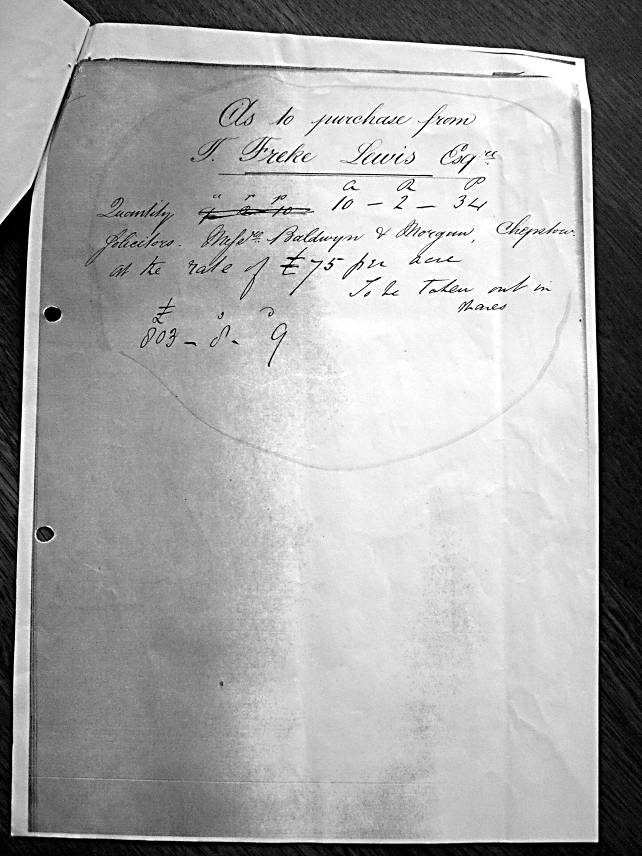 As to purchase from
T. Freke Lewis Esqre
a r p A R P
Quantity 9 2 10 10 – 2 – 34
Solicitors. Messrs. Baldwyn & Morgan, Chepstow.
at the rate of £75 per acre
To be taken out in
shares
£ s d
803 – 8 – 9